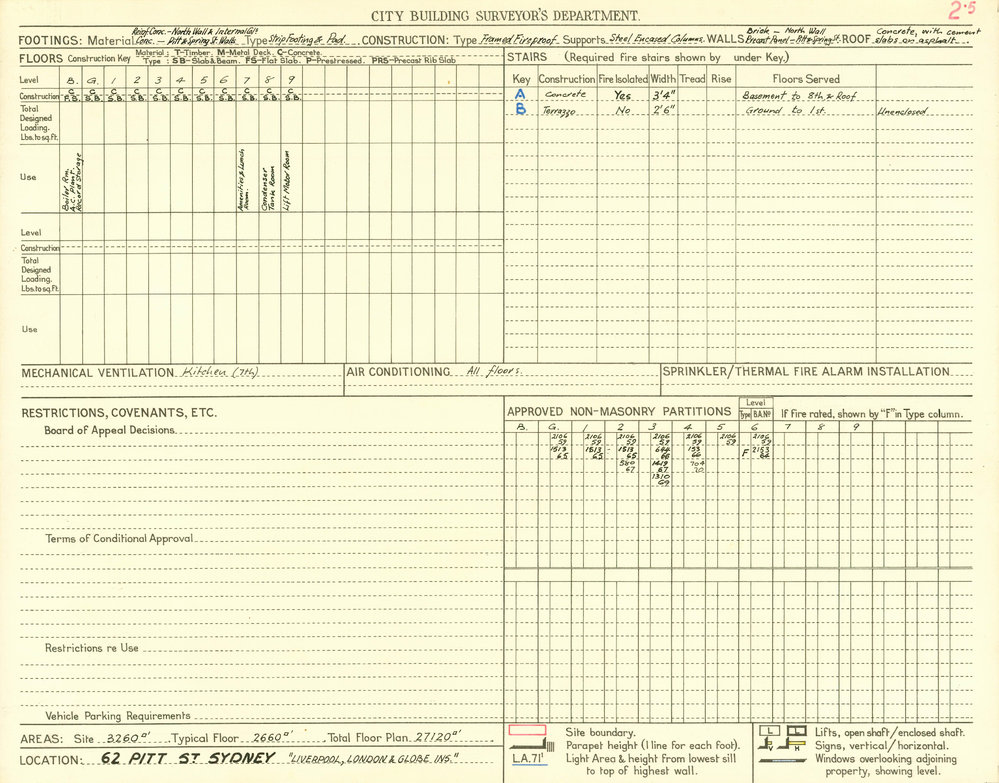 2.5
CITY BUILDING SURVEYOR'S DEPARTMENT.
FOOTINGS: Material Reinf Conc. – North Wall & Internal Col? Conc. – Pitt & Spring St. Walls Type Strip Footing & Pad. CONSTRUCTION: Type Framed Fireproof Supports Steel Encased Columns. WALLS Brick – North Wall Precast Panel – Pitt & Spring St. ROOF Concrete, with cement slabs on asphalt.
FLOORS Construction Key Material; T–Timber. M–Metal Deck. C–Concrete.
Type: SB–Slab & Beam. FS–Flat Slab. P–Prestressed. PRS–Precast Rib Slab
Level B. G. 1 2 3 4 5 6 7 8 9
Construction C F.S. C S.B. C S.B. C S.B. C S.B. C S.B. C S.B. C S.B. C S.B. C S.B. C S.B.
Total Designed Loading. Lbs. to sq. ft.
Use
Boiler Rm.
A.C. Plant.
Record Storage
Amenities & Lunch Room.
Condenser Tank Room
Lift Motor Room
Level
Construction
Total Designed Loading. Lbs. to sq. ft.
Use
STAIRS (Required fire stairs shown by under Key.)
Key Construction Fire Isolated Width Tread Rise Floors Served
A Concrete Yes 3'4" Basement to 8th & Roof
B Terrazzo No 2'6" Ground to 1st. Unenclosed
MECHANICAL VENTILATION Kitchen (7th)
AIR CONDITIONING All floors.
SPRINKLER/THERMAL FIRE ALARM INSTALLATION
RESTRICTIONS, COVENANTS, ETC.
Board of Appeal Decisions
Terms of Conditional Approval
Restrictions re Use
Vehicle Parking Requirements
APPROVED NON-MASONRY PARTITIONS Level Type B.A.Nº If fire rated, shown by "F" in Type column.
B. G. 1 2 3 4 5 6 7 8 9
2106 2106 2106 2106 2106 2106 2106
59 59 59 59 59 59 59
1513 1513 - 1513 644 153 F 2153
65 65 65 66 66 64
580 1419 704
67 67 70
1310
69
AREAS: Site 3260 □' Typical Floor 2660 □' Total Floor Plan. 27120 □'
LOCATION: 62 PITT ST SYDNEY "LIVERPOOL, LONDON & GLOBE INS."
Site boundary.
Parapet height (1 line for each foot).
L.A. 71' Light Area & height from lowest sill to top of highest wall.
L L Lifts, open shaft/enclosed shaft.
V H Signs, vertical/horizontal.
Windows overlooking adjoining property, showing level.